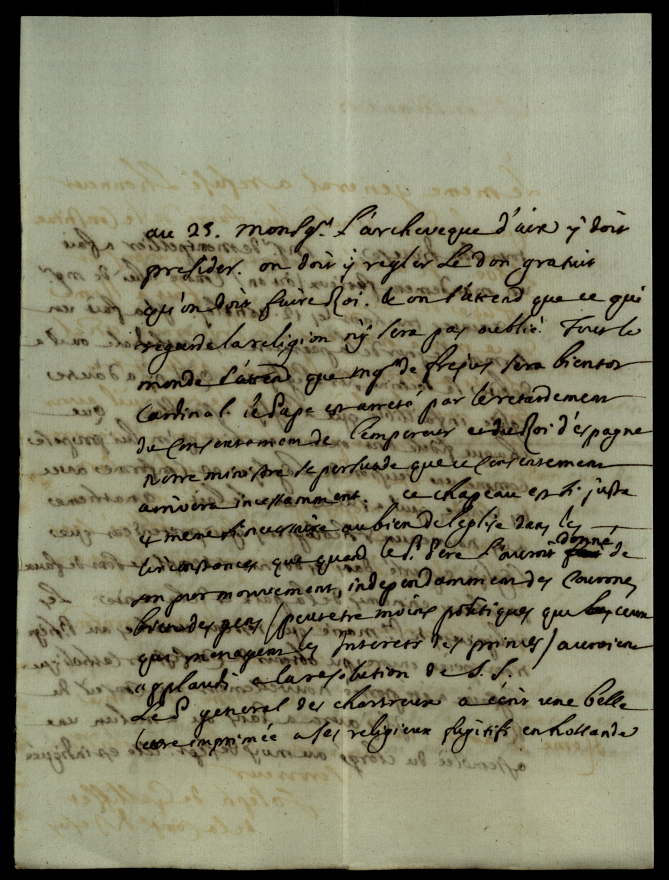 au 25. Monsgr. L'archeveque d'aix y doit
presider. on doit y regler Le don gratuit
qu'on doit faire au Roi. & on s'attend que ce qui
regarde la religion n'y sera pas oublié. Tout le
monde s'attend que mgr. de frejus sera bientot
Cardinal. le Pape est arreté par le retardement
du Consentement de l'empereur et du Roi d'espagne
Notre ministre se persuade que ce Consentement
arrivera incessamment. ce chapeau est si juste
et meme si necessaire au bien de l'eglise dans les
circonstances que quand le St. Pere L'auroit donné de
son pur mouvement, independamment des Couronnes
bien des gens (peutetre moins politiques que ceux
qui menagent les Interets des princes) auroient
applaudi a la resolution de S. S.
Le P general des chartreux a ecrit une belle
lettre imprimée a ses religieux fugitifs en hollande